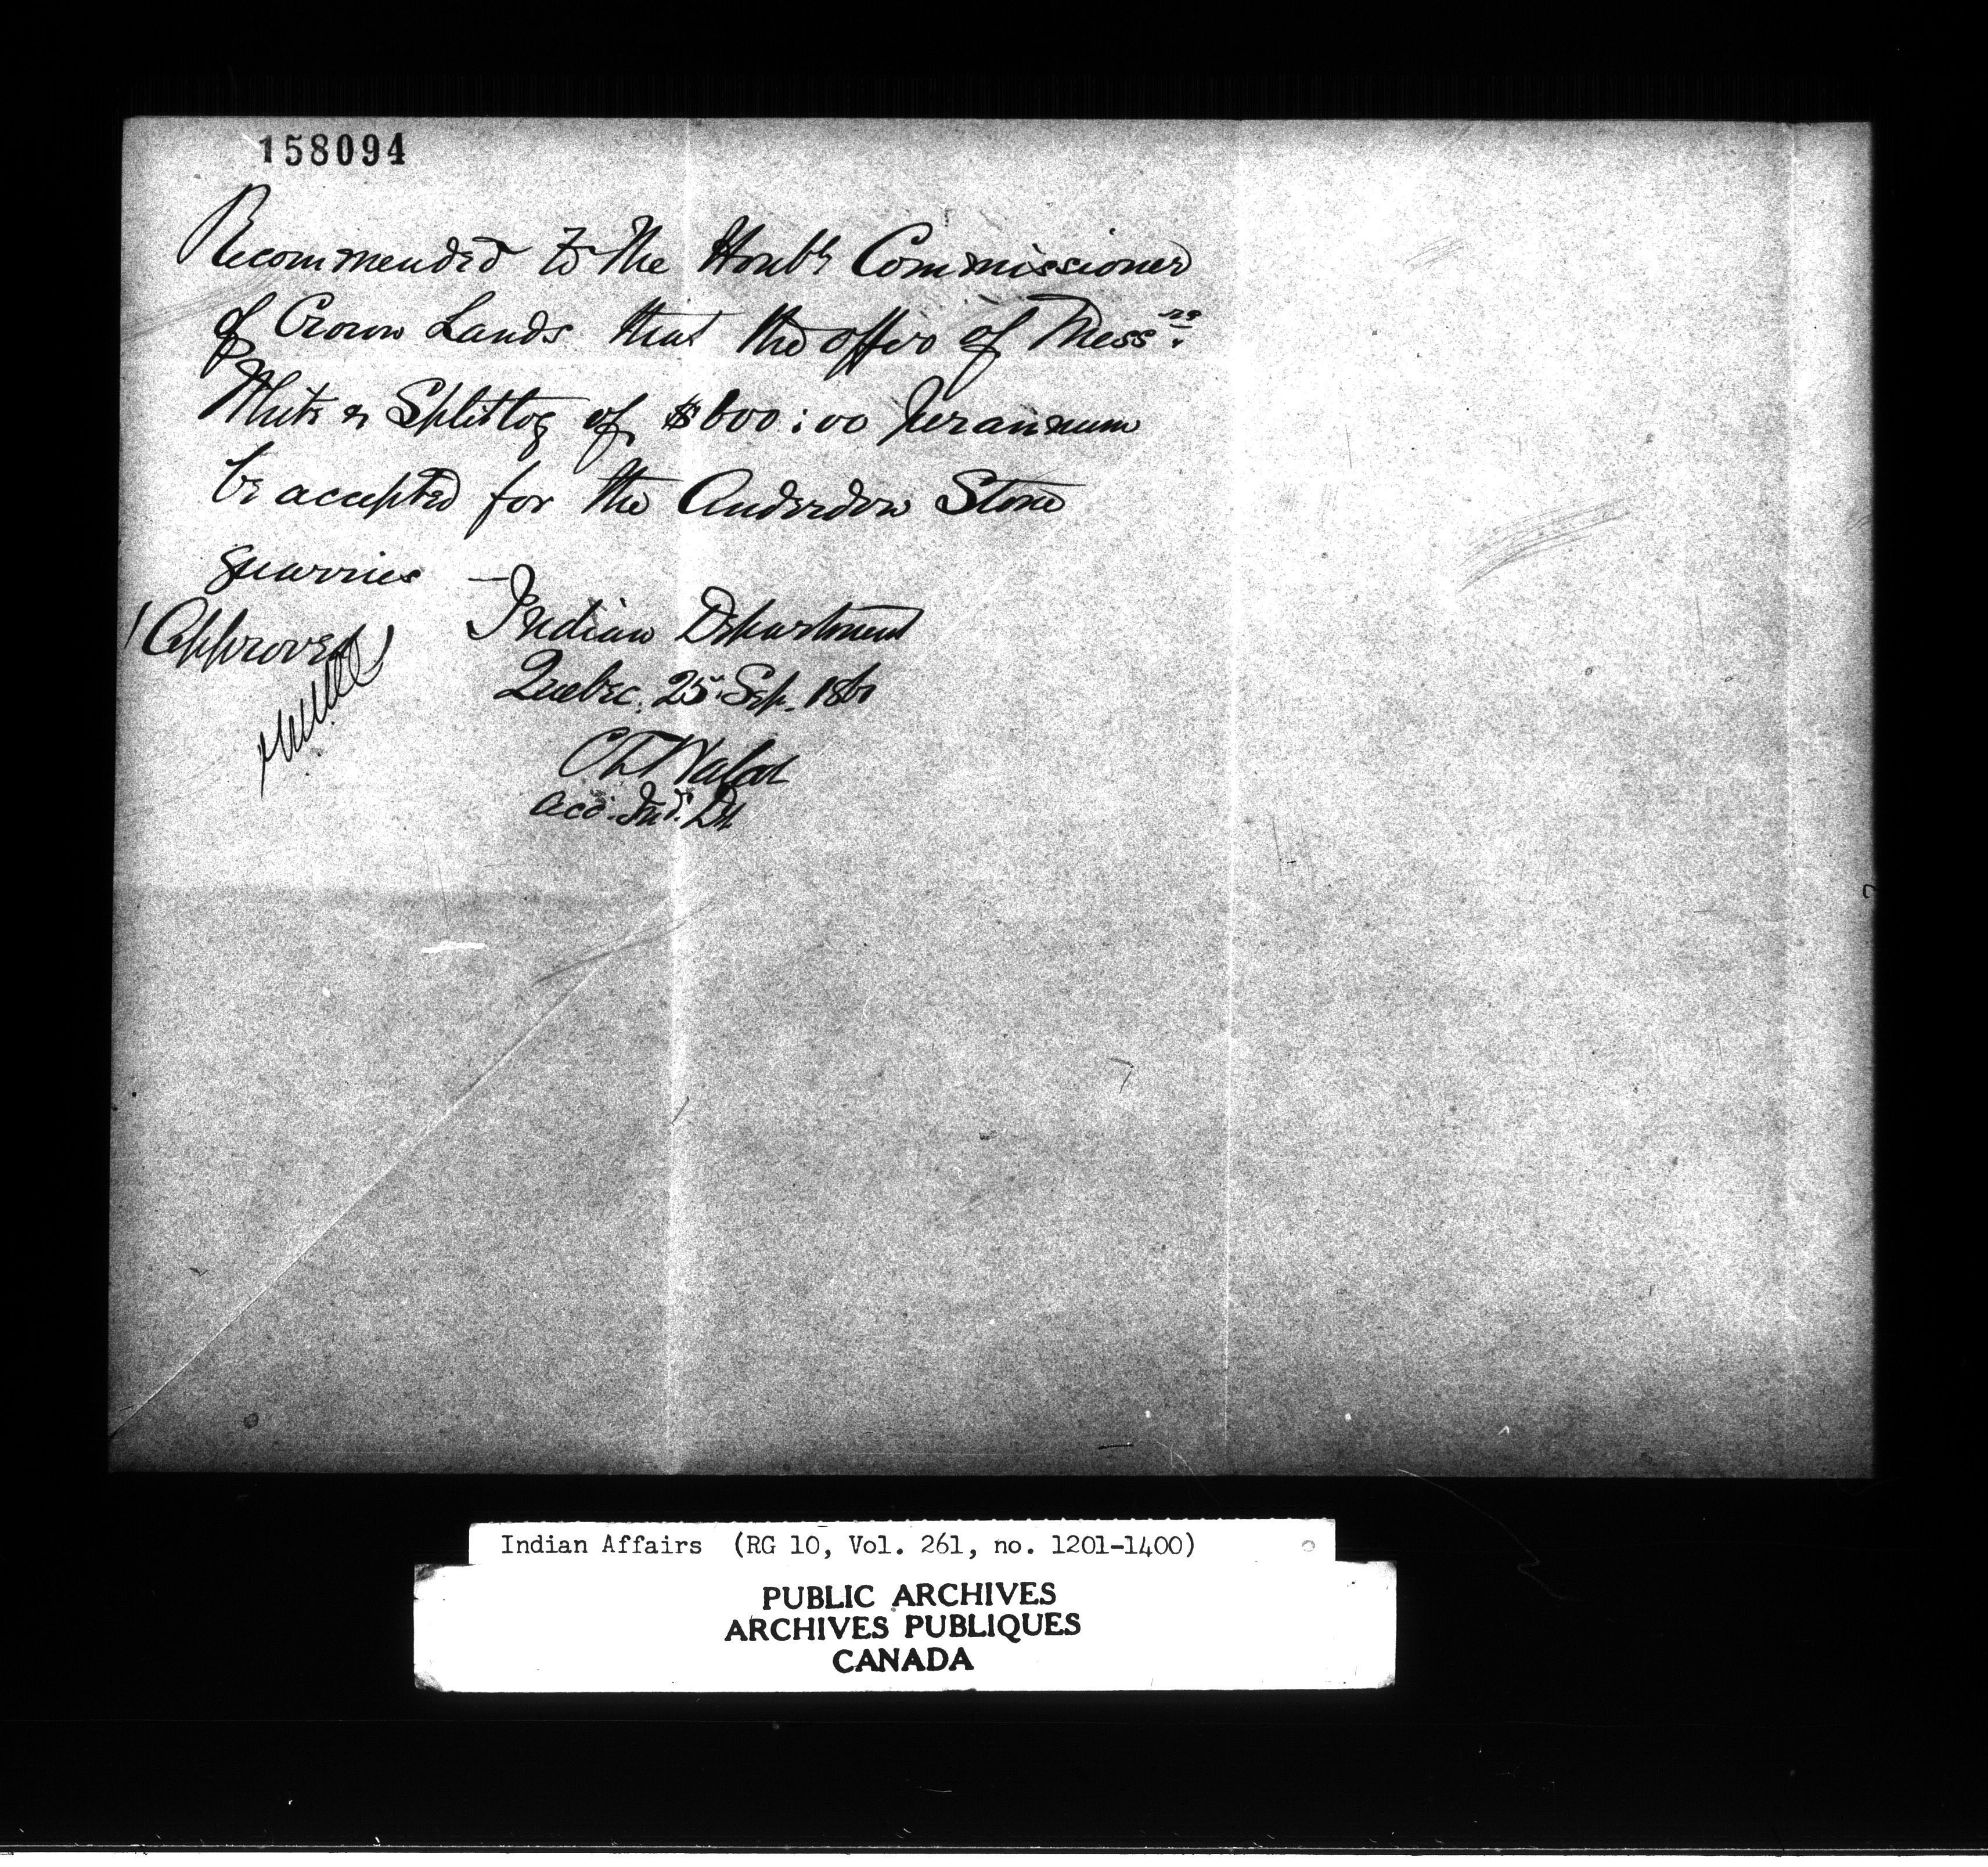 158094
Recommended to the Honble Commissioner
of Crown Lands that the offer of Messrs.
White & Splitlog of $600:00 per annum
be accepted for the Anderdon Stone
quarries —
Approved
Indian Department
Quebec, 25 Sep. 1861
C T Walcot
Acc. Ind. Dt
Indian Affairs (RG 10, Vol. 261, no. 1201-1400)
PUBLIC ARCHIVES
ARCHIVES PUBLIQUES
CANADA